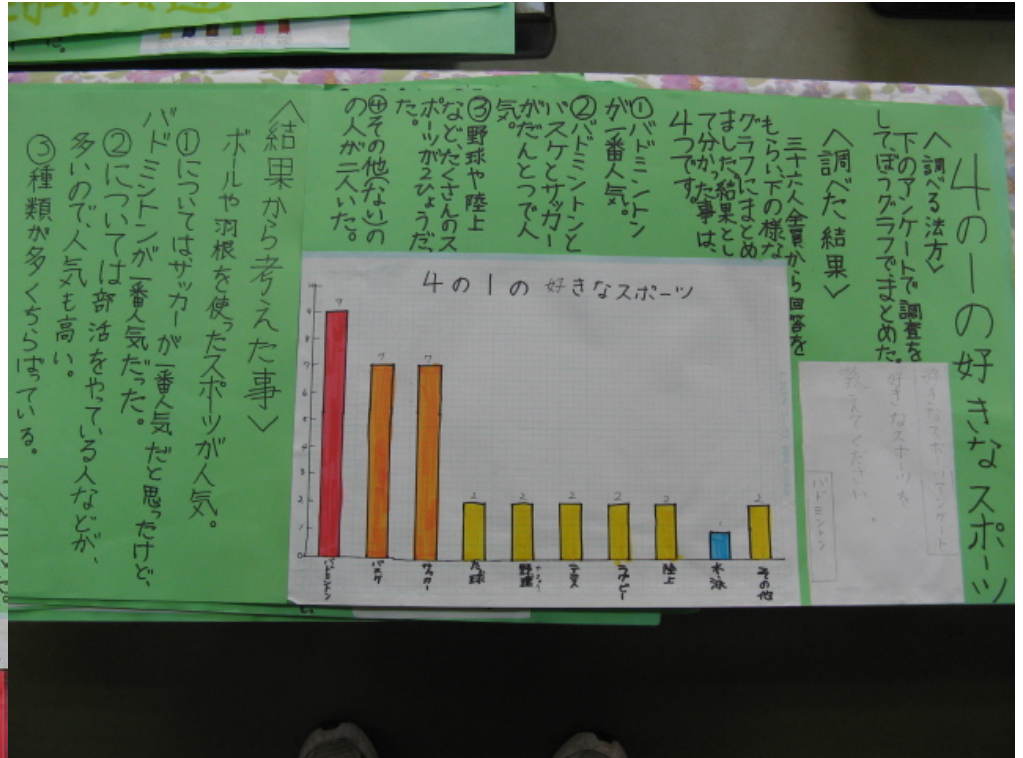 4の一の好きなスポーツ
〈調べる法方〉
下のアンケートで調査を
して、ぼうグラフでまとめた。
好きなスポーツアンケート
好きなスポーツを
教えてください
バドミントン
〈調べた結果〉
三十六人全員から回答を
もらい、下の様な
グラフにまとめ
ました。結果とし
て分かった事は、
4つです。
①バドミントン
が一番人気。
②バドミントンと
バスケとサッカー
がだんとつで人
気。
③野球や陸上
など、たくさんのス
ポーツが2ひょうだっ
た。
④その他(ない)の
の人が二人いた。
4の1の好きなスポーツ
9
7
7
2
2
2
2
2
1
2
バドミントン
バスケ
サッカー
たっ球
野球
テニス
ラグビー
陸上
水泳
その他
〈結果から考えた事〉
ボールや羽根を使ったスポーツが人気。
①についてはサッカーが一番人気だと思ったけど、
バドミントンが一番人気だった。
②については部活をやっている人などが、
多いので、人気も高い。
③種類が多くちらばっている。